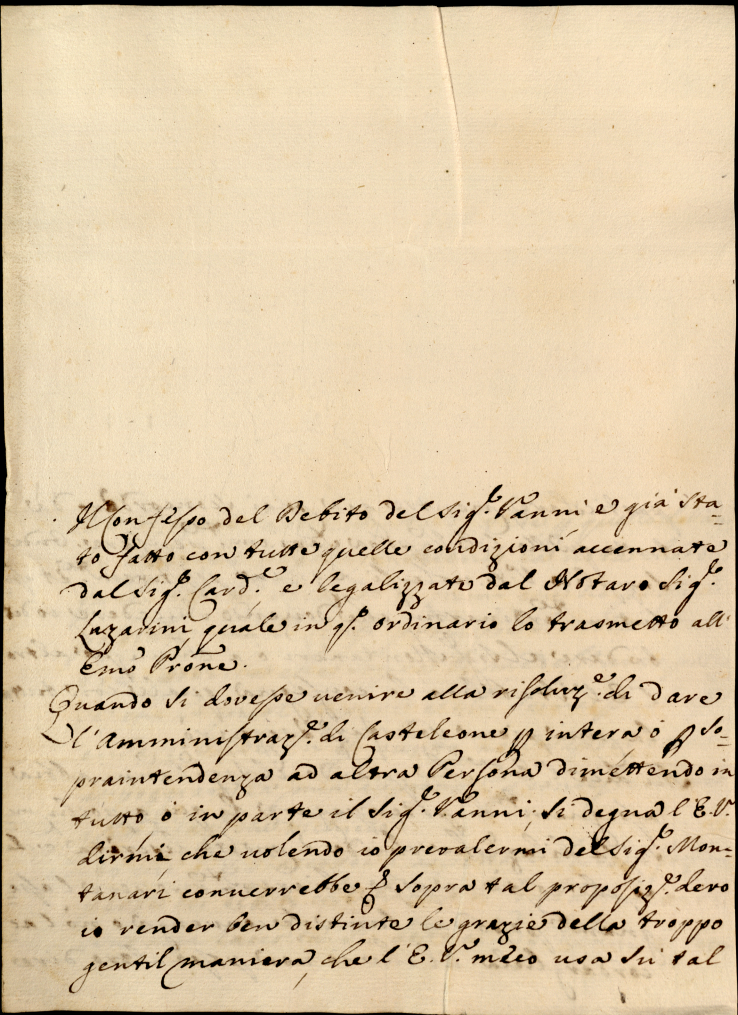 Il Confesso del Debito del Sig.r Vanni e già sta-
to fatto con tutte quelle condizioni accennate
dal Sig.r Card.e e legalizzato dal Notaro Sig.r
Luzarini quale in q.o ordinario lo trasmetto all'
Emo Prōne.
Quando si dovesse venire alla risoluz.e di dare
l'Amministraz.e di Casteleone p intera ò p so-
praintendenza ad altra Persona dimettendo in
tutto ò in parte il Sig.r Vanni, si degna l'E. V.
dirmi che volendo io prevalermi del Sig.r Mon-
tanari converrebbe sopra tal proposiz.e devo
io render ben distinte le grazie della troppo
gentil maniera, che l'E. V. meco usa su tal